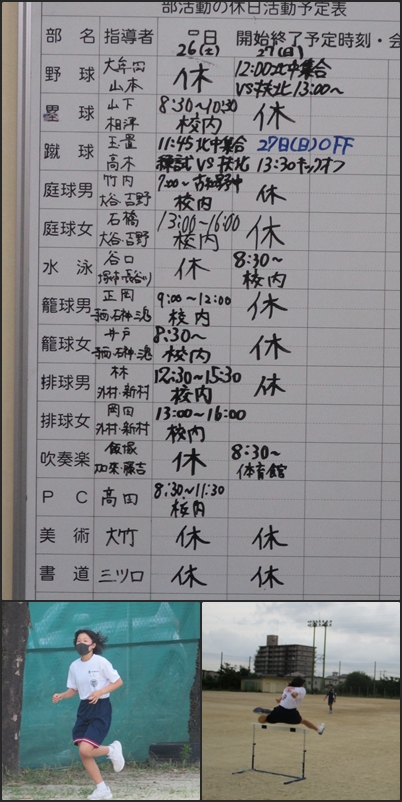 部活動の休日活動予定表
部 名 指導者 日 開始終了予定時刻・会
26(土) 27(日)
野 球 大牟田 山本 休 12:00北中集合
VS扶北 13:00〜
塁 球 山下 相澤 8:30〜10:30 校内 休
蹴 球 玉置 高木 11:45 北中集合 27日(日)OFF
練試 VS 扶北 13:30キックオフ
庭球男 竹内 大谷・吉野 7:00〜 古知野中 校内 休
庭球女 石橋 大谷・吉野 13:00〜16:00 校内 休
水 泳 谷口 休 8:30〜 校内
籠球男 正岡 9:00〜12:00 校内 休
籠球女 井戸 8:30〜 校内 休
排球男 林 外村・新村 12:30〜15:30 校内 休
排球女 岡田 外村・新村 13:00〜16:00 校内
吹奏楽 飯塚 加来・藤吉 休 8:30〜 体育館
P C 高田 8:30〜11:30 校内
美 術 大竹 休 休
書 道 三ツ口 休 休